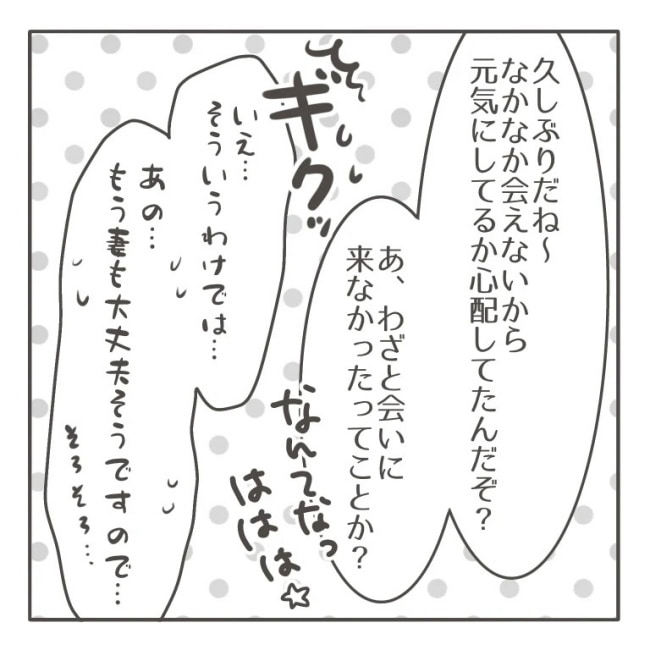 久しぶりだね～
なかなか会えないから
元気にしてるか心配してたんだぞ？
あ、わざと会いに
来なかったってことか？
なんてなっ
ははは☆
ギクッ
いえ…
そういうわけでは…
あの…
もう妻も大丈夫そうですので…
そろそろ…